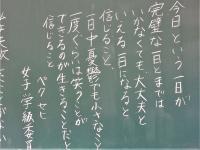 今日という一日が
完璧な一日とまでは
いかなくても大丈夫と
いえる一日になると
信じること。
一日中憂鬱でも小さなこと
一度くらいは笑うことが
できるのが生きることだと
信じること
ペク セヒ
女子 学級委員